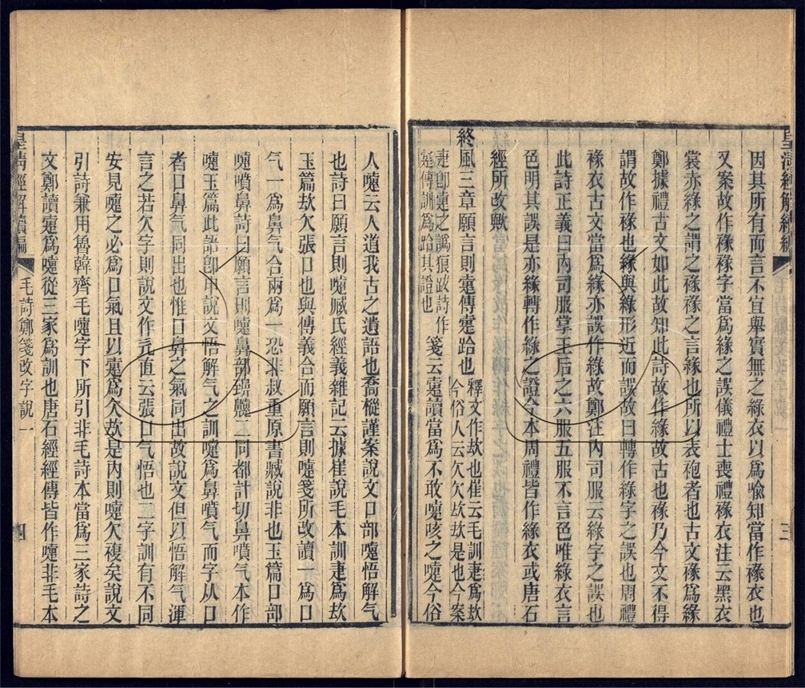 因其所有而言不宜舉實無之綠衣以爲喻知當作褖衣也
又案故作褖褖字當爲綠之誤儀禮士喪禮褖衣注云黑衣
裳亦緣之謂之褖褖之言緣也所以表袍者也古文褖爲緣
鄭據禮古文如此故知此詩故作緣故古也褖乃今文不得
謂故作褖也緣與綠形近而誤故曰轉作綠字之誤也周禮
褖衣古文當爲緣亦誤作綠故鄭注內司服云綠字之誤也
此詩正義曰內司服掌王后之六服五服不言色唯綠衣言
色明其誤是亦緣轉作綠之證今本周禮皆作緣衣或唐石
經所改歟
終風三章願言則疐傳疐跲也
釋文作㰦也崔云毛訓疌爲㰦
今俗人云欠欠㰦㰦是也今案
疌卽疐之譌狼跋詩作
疐傳訓爲跲其證也
箋云疐讀當爲不敢嚏咳之嚏今俗
人嚏云人道我古之遺語也喬樅謹案說文口部嚏悟解气
也詩曰願言則嚏臧氏經義雜記云據崔說毛本訓疌爲㰦
玉篇㰦欠張口也與傳義合而願言則嚏箋所改讀一爲口
气一爲鼻气合兩爲一恐非叔重原書臧說非也玉篇口部
嚏噴鼻詩曰願言則嚏鼻部 二同都計切鼻噴气本作
嚏玉篇此語卽申說文悟解气之訓嚏爲鼻噴气而字从口
者口鼻气同出也惟口鼻之气同出故說文但以悟解气渾
言之若欠字則說文作㒫直云張口气悟也二字訓有不同
安見嚏之必爲口氣且以疐爲欠㰦是內則嚏欠複矣說文
引詩兼用魯韓齊毛嚏字下所引非毛詩本當爲三家詩之
文鄭讀疐爲嚏從三家爲訓也唐石經經傳皆作嚏非毛本
皇淸經解續編
毛詩鄭箋改字說一
三
四